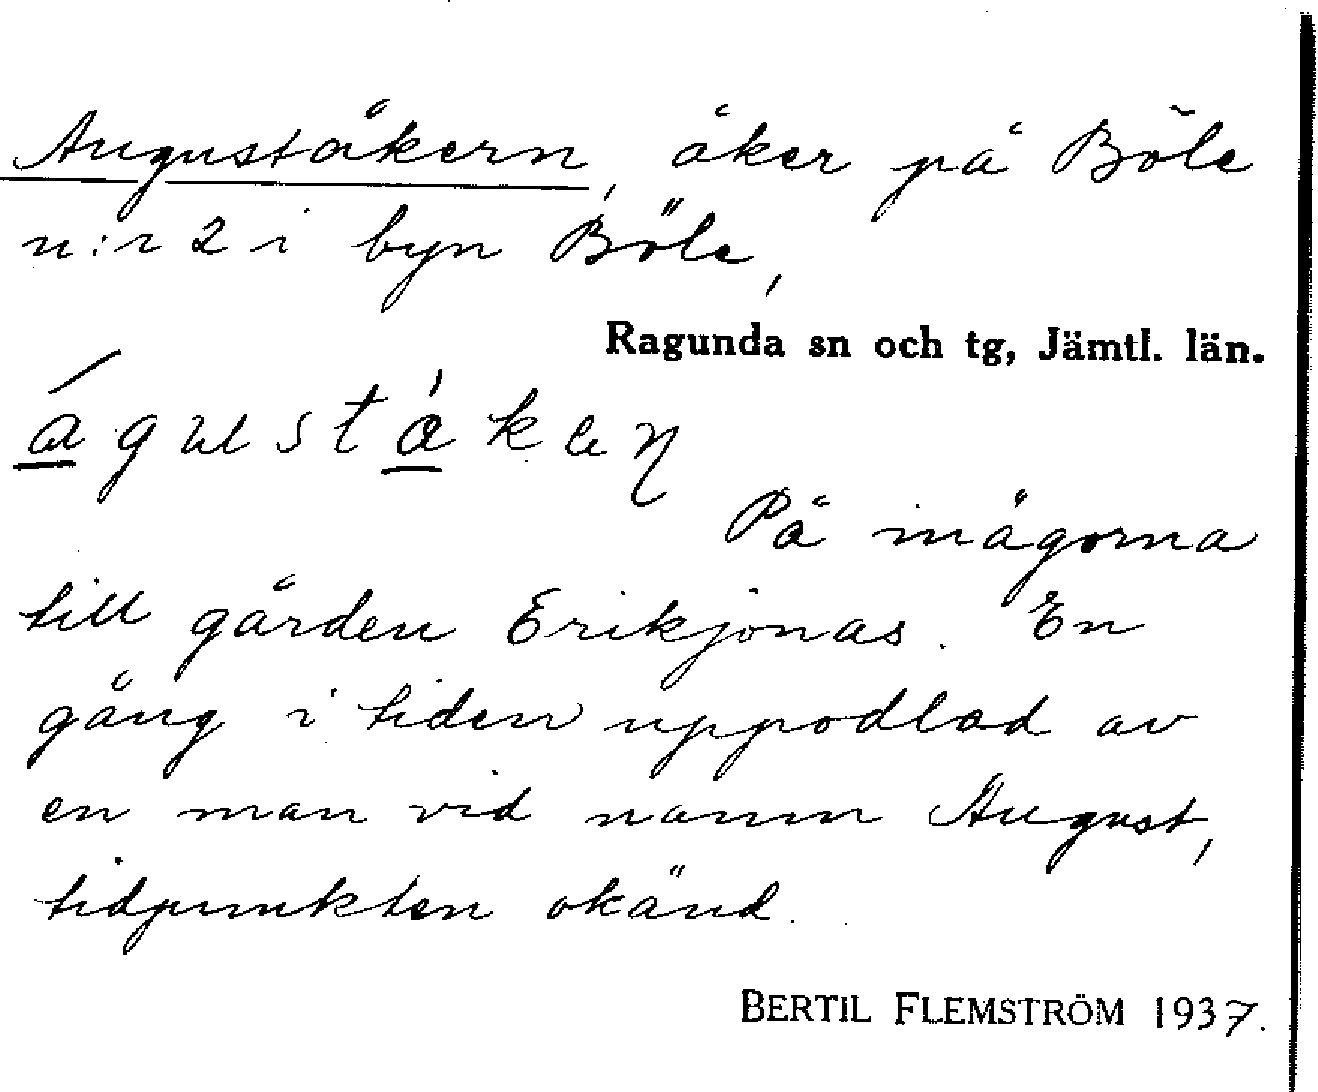 Auguståkern, åker på Böle
n:r 2 i byn Böle,
Ragunda sn och tg, Jämtl. län.
águstákeɳ
På inägorna
till gården Erikjonas. En
gång i tiden uppodlad av
en man vid namn August,
tidpunkten okänd.
BERTIL FLEMSTRÖM 1937.